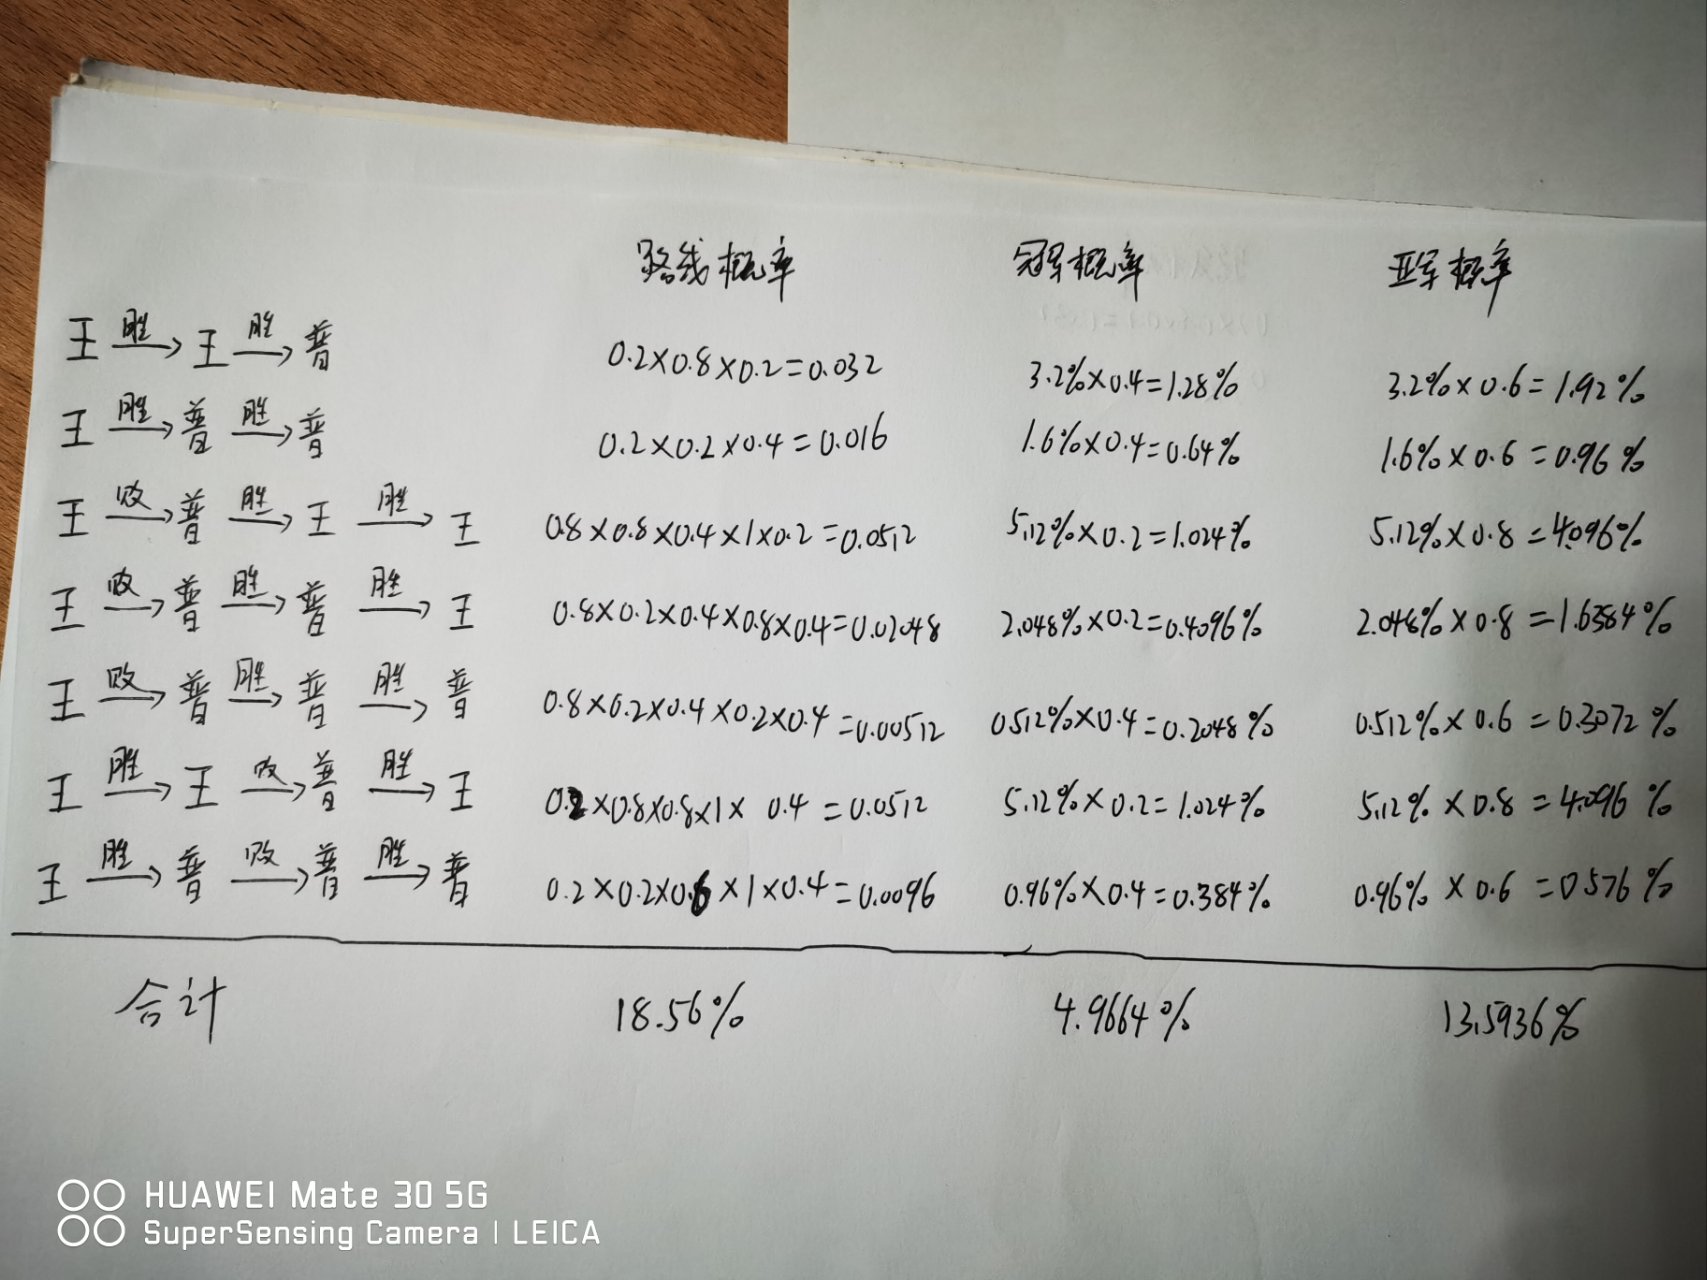 路线概率 冠军概率 亚军概率
王 胜→ 王 胜→ 普 0.2×0.8×0.2=0.032 3.2%×0.4=1.28% 3.2%×0.6=1.92%
王 胜→ 普 胜→ 普 0.2×0.2×0.4=0.016 1.6%×0.4=0.64% 1.6%×0.6=0.96%
王 败→ 普 胜→ 王 胜→ 王 0.8×0.8×0.4×1×0.2=0.0512 5.12%×0.2=1.024% 5.12%×0.8=4.096%
王 败→ 普 胜→ 普 胜→ 王 0.8×0.2×0.4×0.8×0.4=0.02048 2.048%×0.2=0.4096% 2.048%×0.8=1.6384%
王 败→ 普 胜→ 普 胜→ 普 0.8×0.2×0.4×0.2×0.4=0.00512 0.512%×0.4=0.2048% 0.512%×0.6=0.3072%
王 胜→ 王 败→ 普 胜→ 王 0.2×0.8×0.8×1×0.4=0.0512 5.12%×0.2=1.024% 5.12%×0.8=4.096%
王 胜→ 普 败→ 普 胜→ 普 0.2×0.2×0.6×1×0.4=0.0096 0.96%×0.4=0.384% 0.96%×0.6=0.576%
合计 18.56% 4.9664% 13.5936%
HUAWEI Mate 30 5G
SuperSensing Camera | LEICA